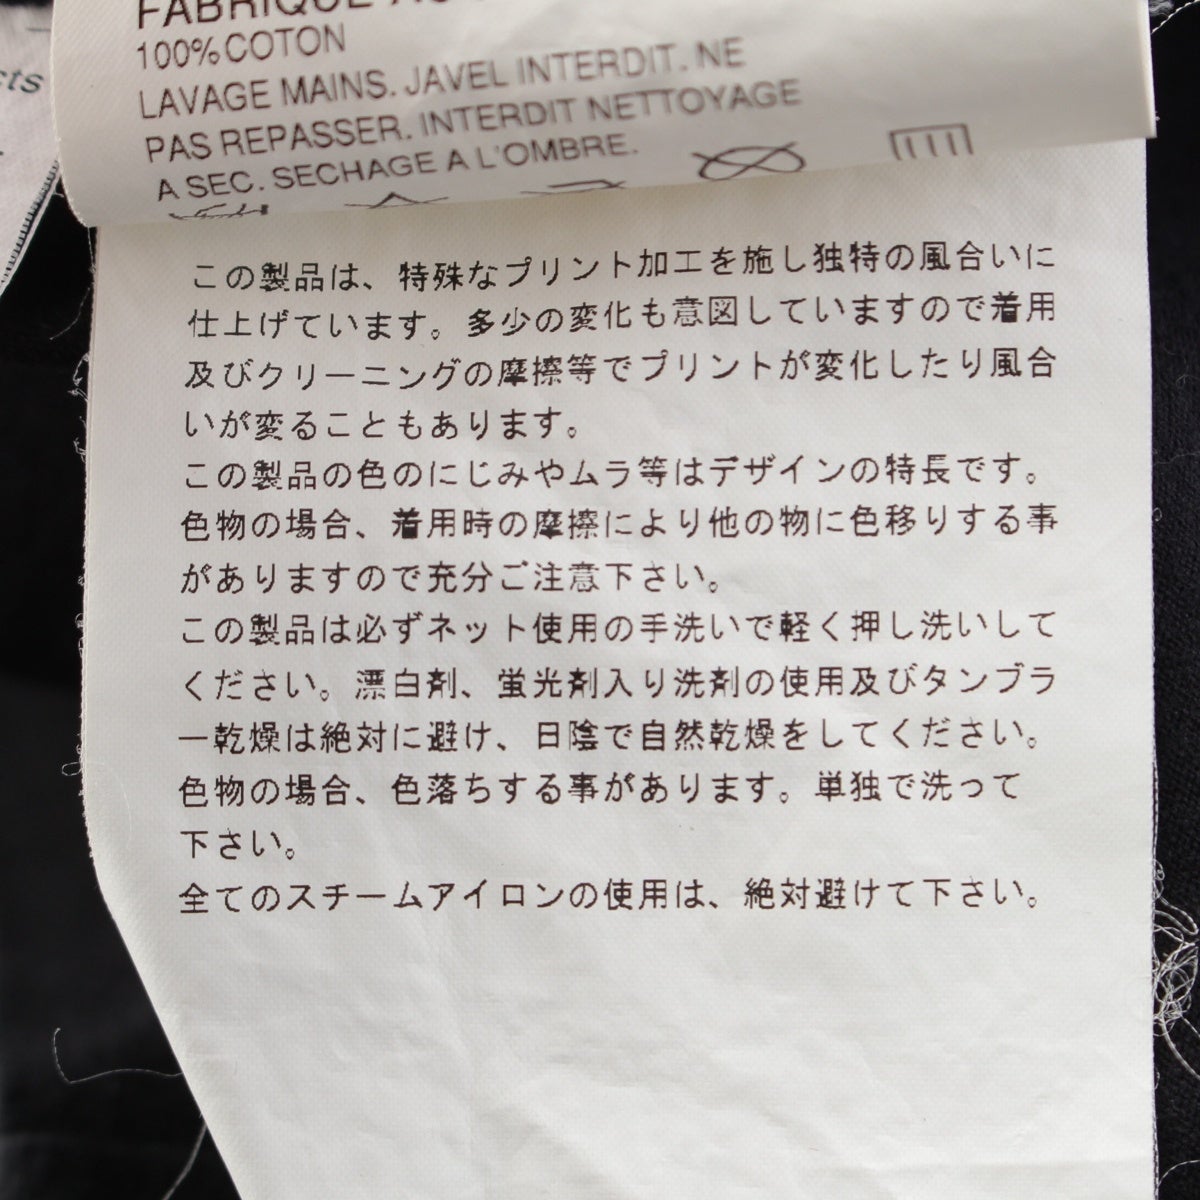 FABRIQUE AU
100% COTON
LAVAGE MAINS. JAVEL INTERDIT. NE
PAS REPASSER. INTERDIT NETTOYAGE
A SEC. SECHAGE A L'OMBRE.
この製品は、特殊なプリント加工を施し独特の風合いに
仕上げています。多少の変化も意図していますので着用
及びクリーニングの摩擦等でプリントが変化したり風合
いが変ることもあります。
この製品の色のにじみやムラ等はデザインの特長です。
色物の場合、着用時の摩擦により他の物に色移りする事
がありますので充分ご注意下さい。
この製品は必ずネット使用の手洗いで軽く押し洗いして
ください。漂白剤、蛍光剤入り洗剤の使用及びタンブラ
ー乾燥は絶対に避け、日陰で自然乾燥をしてください。
色物の場合、色落ちする事があります。単独で洗って
下さい。
全てのスチームアイロンの使用は、絶対避けて下さい。